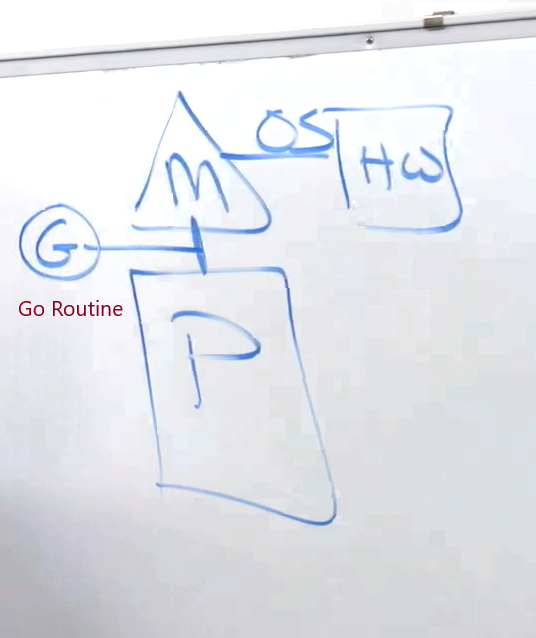 OS
M
HW
G
Go Routine
P